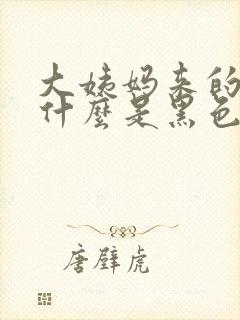 大姨妈来的
什麽是黑色
唐壁虎